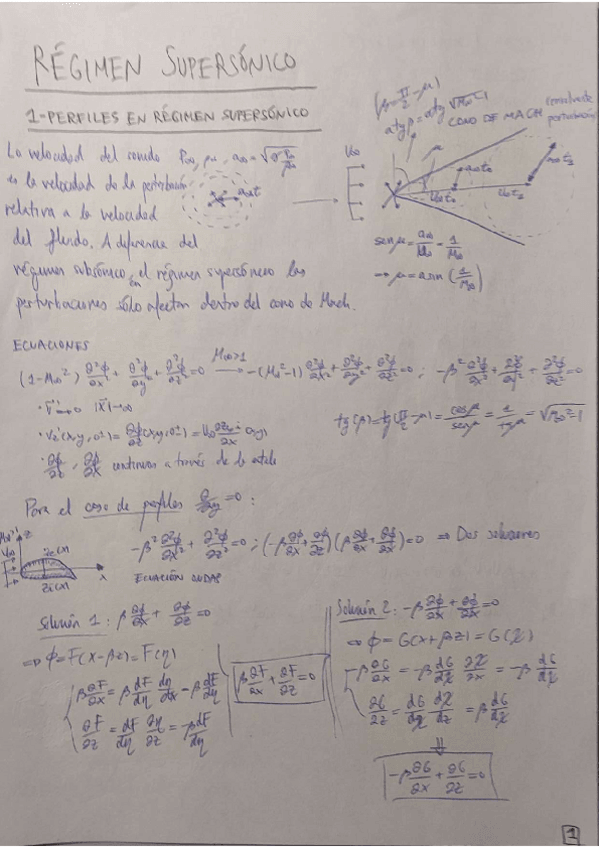 RÉGIMEN SUPERSÓNICO
1-PERFILES EN RÉGIMEN SUPERSÓNICO
La velocidad del sonido P∞, ρ∞, a∞=√(γ P∞/ρ∞)
es la velocidad de la perturbación
relativa a la velocidad
del fluido. A diferencia del
régimen subsónico, en el régimen supersónico las
perturbaciones sólo afectan dentro del cono de Mach.
a∞t
(β=π/2-μ)
atgβ=atg √(M∞²-1)
CONO DE MACH
perturbación
U∞
μ
a∞t₁
U∞t₁
a∞t₂
U∞t₂
senμ = a∞/U∞ = 1/M∞
→ μ = asin (1/M∞)
ECUACIONES
(1-M∞²) ∂²ϕ/∂x² + ∂²ϕ/∂y² + ∂²ϕ/∂z² =0 M∞>1 → -(M∞²-1) ∂²ϕ/∂x² + ∂²ϕ/∂y² + ∂²ϕ/∂z² =0 ; -β² ∂²ϕ/∂x² + ∂²ϕ/∂y² + ∂²ϕ/∂z² =0
· V'→0 |x|→∞
tg(β)=tg(π/2-μ)= cosμ/senμ = 1/tgμ = √(M∞²-1)
· ∂ϕ/∂z, ∂ϕ/∂x continuos a través de la estela
Para el caso de perfiles ∂/∂y =0 :
M∞>1
U∞
z
x
-β² ∂²ϕ/∂x² + ∂²ϕ/∂z² =0 ; (-β ∂ϕ/∂x + ∂ϕ/∂z)(β ∂ϕ/∂x + ∂ϕ/∂z)=0 ⇒ Dos soluciones
ECUACIÓN ONDAS
Solución 1: β ∂ϕ/∂x + ∂ϕ/∂z =0
⇒ ϕ=F(x-βz)=F(η)
β ∂F/∂x = β dF/dη dη/dx = β dF/dη
∂F/∂z = dF/dη ∂η/∂z = -β dF/dη
β ∂F/∂x + ∂F/∂z =0
Solución 2: -β ∂ϕ/∂x + ∂ϕ/∂z =0
⇒ ϕ=G(x+βz)=G(χ)
-β ∂G/∂x = -β dG/dχ ∂χ/∂x = -β dG/dχ
∂G/∂z = dG/dχ dχ/dz = β dG/dχ
⇓
-β ∂G/∂x + ∂G/∂z =0
1